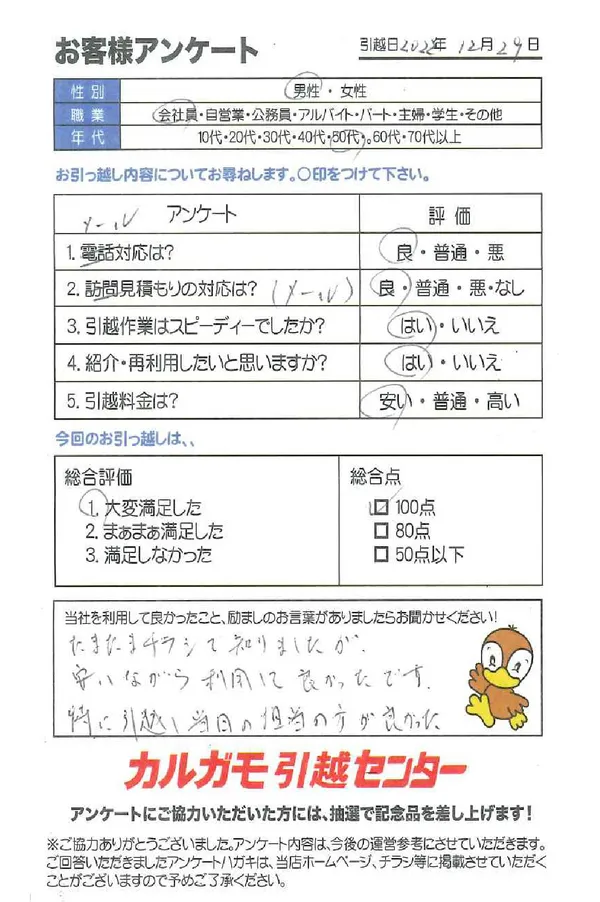 お客様アンケート
引越日2022年 12月 29日
性別 男性・女性
職業 会社員・自営業・公務員・アルバイト・パート・主婦・学生・その他
年代 10代・20代・30代・40代・50代・60代・70代以上
お引っ越し内容についてお尋ねします。○印をつけて下さい。
メール
アンケート 評価
1. 電話対応は? 良・普通・悪
2. 訪問見積もりの対応は?(メール) 良・普通・悪・なし
3. 引越作業はスピーディーでしたか? はい・いいえ
4. 紹介・再利用したいと思いますか? はい・いいえ
5. 引越料金は? 安い・普通・高い
今回のお引っ越しは、、
総合評価 総合点
1. 大変満足した 100点
2. まぁまぁ満足した 80点
3. 満足しなかった 50点以下
当社を利用して良かったこと、励ましのお言葉がありましたらお聞かせください!
たまたまチラシで知りましたが、
安いながら利用して良かったです。
特に引越し当日の担当の方が良かった
カルガモ引越センター
アンケートにご協力いただいた方には、抽選で記念品を差し上げます!
※ご協力ありがとうございました。アンケート内容は、今後の運営参考にさせていただきます。
ご回答いただきましたアンケートハガキは、当店ホームページ、チラシ等に掲載させていただく
ことがございますので予めご了承ください。